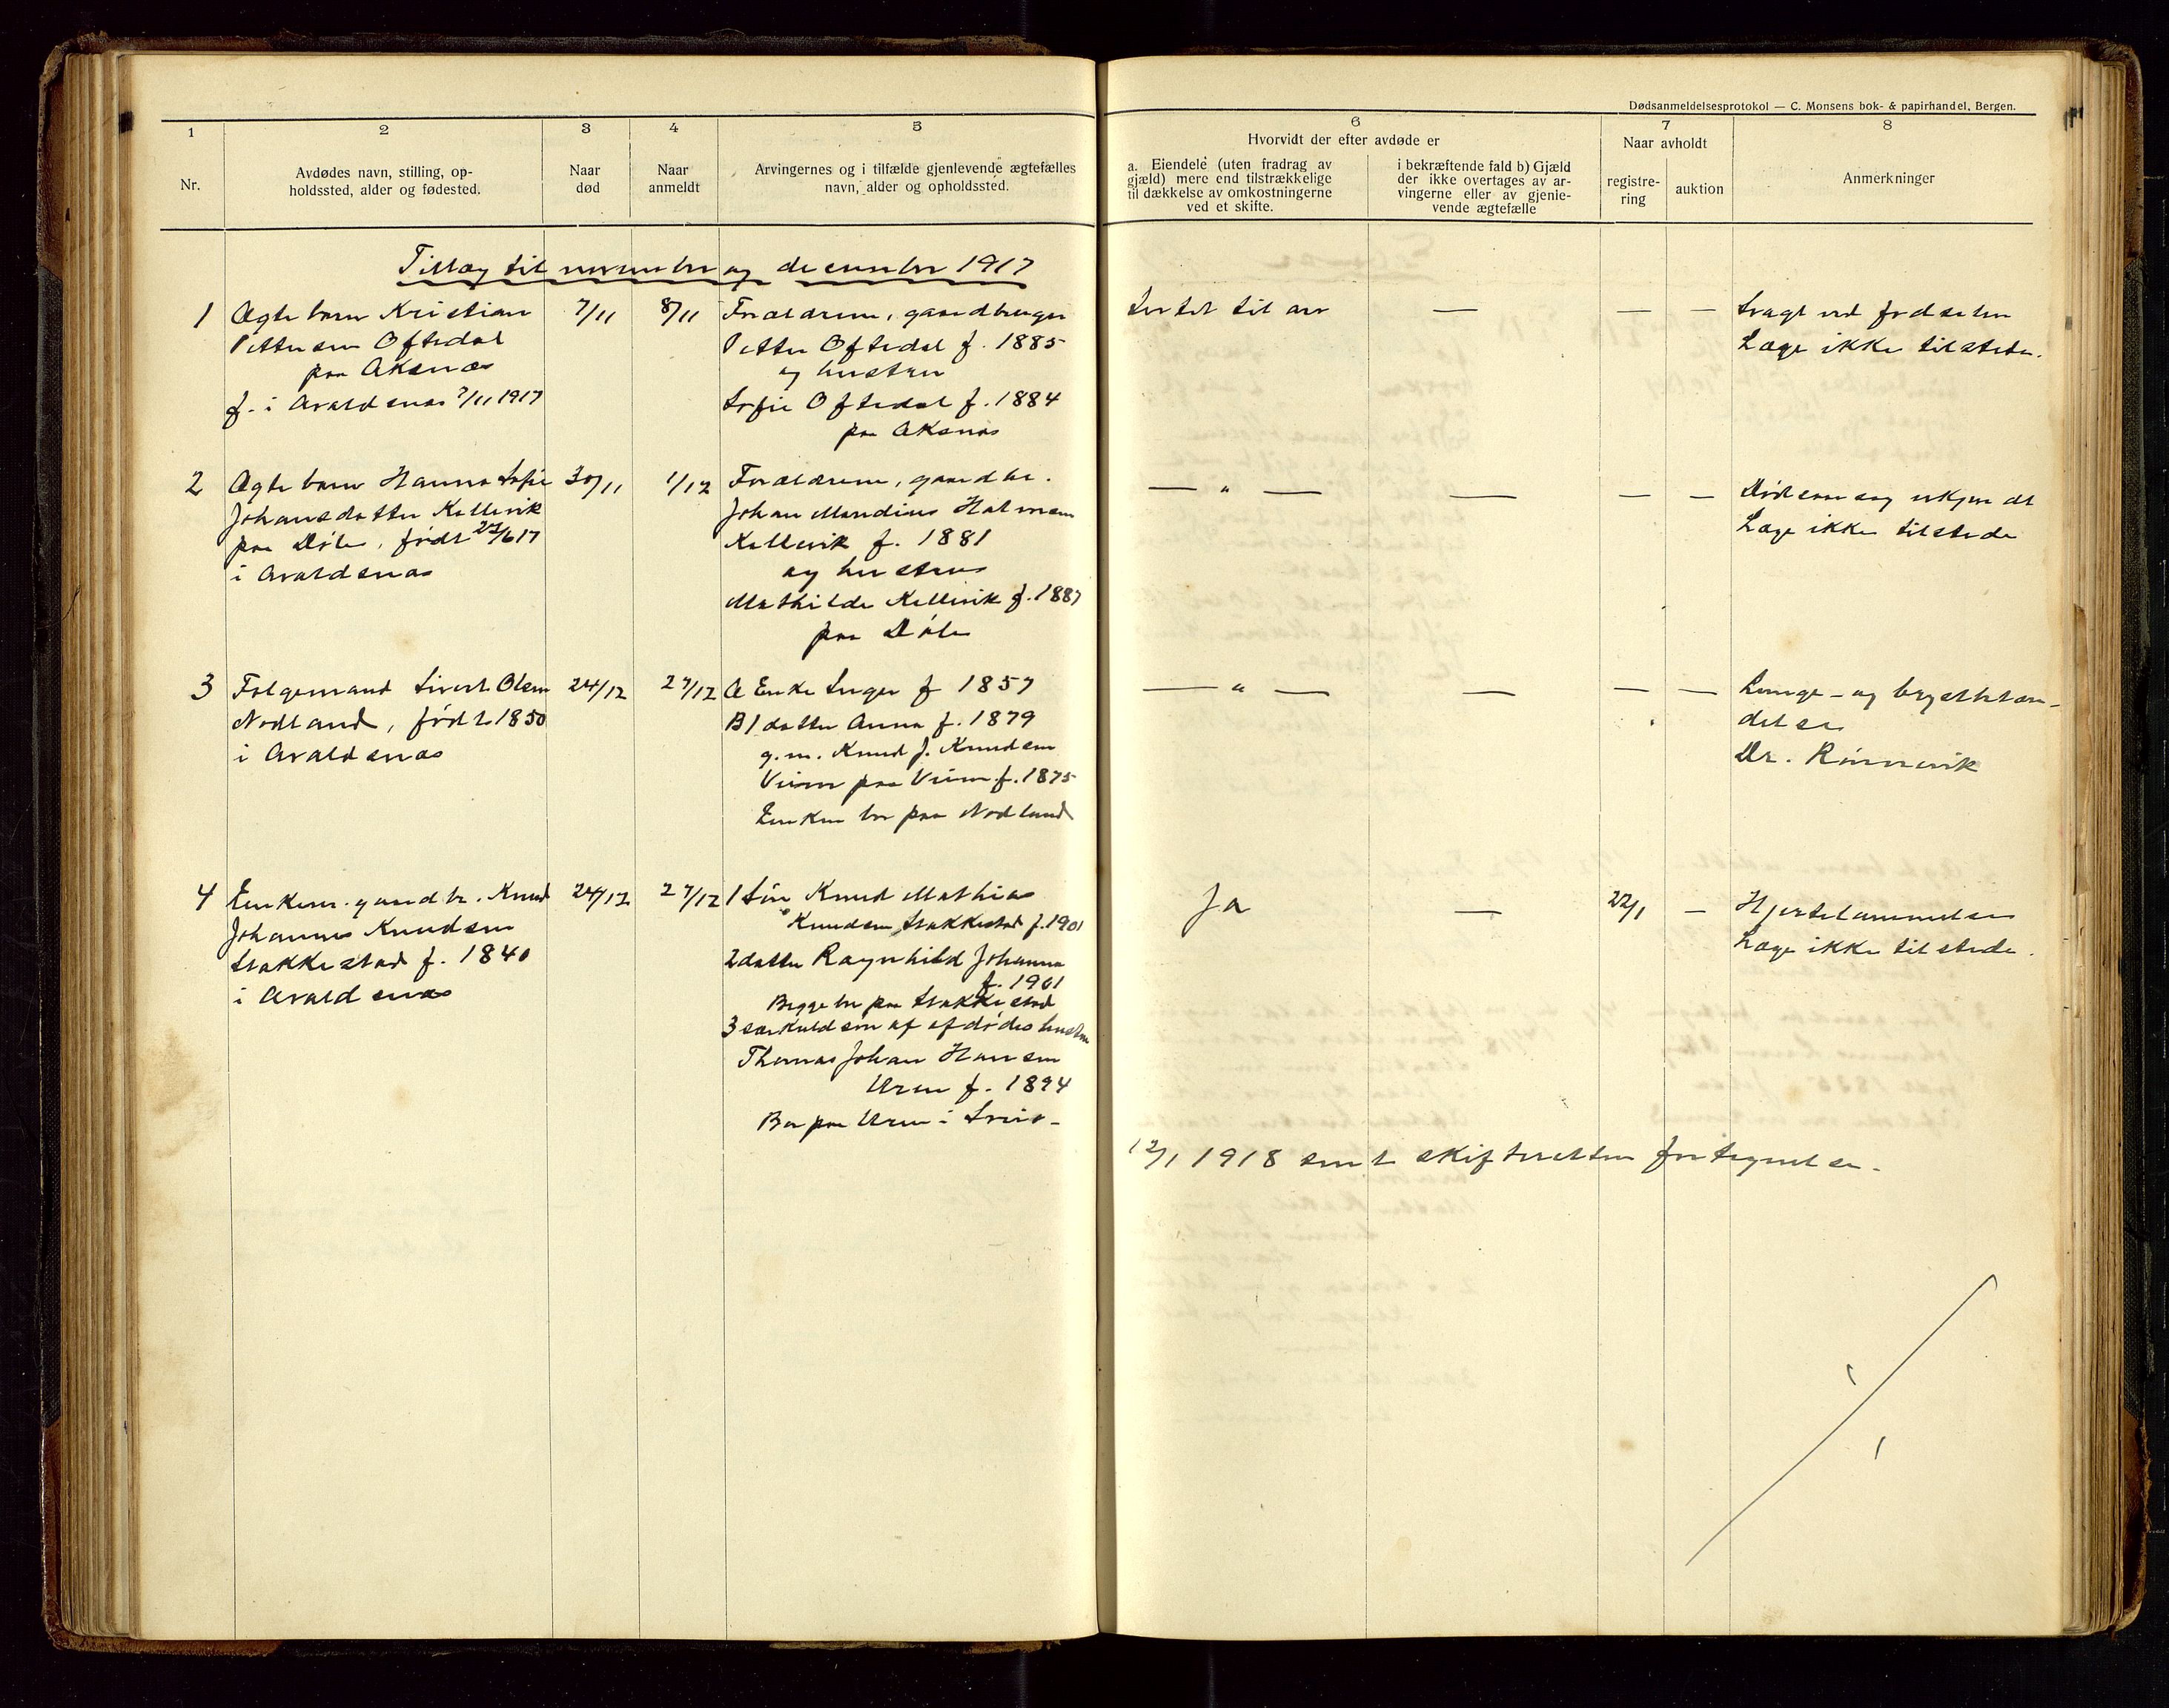 Dødsanmeldelsesprotokol — C. Monsens bok- & papirhandel, Bergen.
1
2
3
4
5
6
7
8
Nr.
Avdødes navn, stilling, op-
holdssted, alder og fødested.
Naar
død
Naar
anmeldt
Arvingernes og i tilfælde gjenlevende ægtefælles
navn, alder og opholdssted.
Hvorvidt der efter avdøde er
a. Eiendele (uten fradrag av
gjæld) mere end tilstrækkelige
til dækkelse av omkostningerne
ved et skifte.
i bekræftende fald b) Gjæld
der ikke overtages av ar-
vingerne eller av gjenle-
vende ægtefælle
Naar avholdt
registre-
ring
auktion
Anmerkninger
Tillæg til november og december 1917
1
Ægte barn Kristian
Pettersen Oftedal
paa Aksnæs
f. i Avaldsnæs 7/11 1917
7/11
8/11
Forældrene, gaardbruger
Petter Oftedal f. 1885
og hustru
Sofie Oftedal f. 1884
paa Aksnæs
Intet til arv
—
—
—
Svagt ved fødselen
Læge ikke tilstede.
2
Ægte barn Hanna Sofie
Johansdatter Kallevik
paa Døle, født 27/6 17
i Avaldsnæs
30/11
1/12
Forældrene, gaardbr.
Johan Mandius
Kallevik f. 1881
og hustru
Mathilde Kallevik f. 1887
paa Døle
— " —
—
—
—
Dødsaarsag ukjendt
Læge ikke tilstede
3
Følgemand Sivert Olsen
Nodland, født 1850
i Avaldsnæs
24/12
27/12
A Enke Inger f 1857
B 1 datter Anna f. 1879
g. m. Knud J. Knudsen
f. 1875
Enken bor paa Nodland
— " —
—
—
—
Lunge- og brystbetæn-
delse
Dr. Rønnevik
4
Enkem. gaardbr. Knud
Johannes Knudsen
Stakkestad f. 1840
i Avaldsnæs
24/12
27/12
1 Søn Knud Mathias
Knudsen Stakkestad f. 1901
2 datter Ragnhild Johanna
f. 1901
Begge bor paa Stakkestad
3 særkuldsøn af afdødes hustru
Thomas Johan Hansen
Uren f. 1894
Bor paa Uren i Sveio-
Ja
—
22/1
—
Hjertelammelse
Læge ikke tilstede.
12/1 1918 sendt skifteretten fortegnelse.